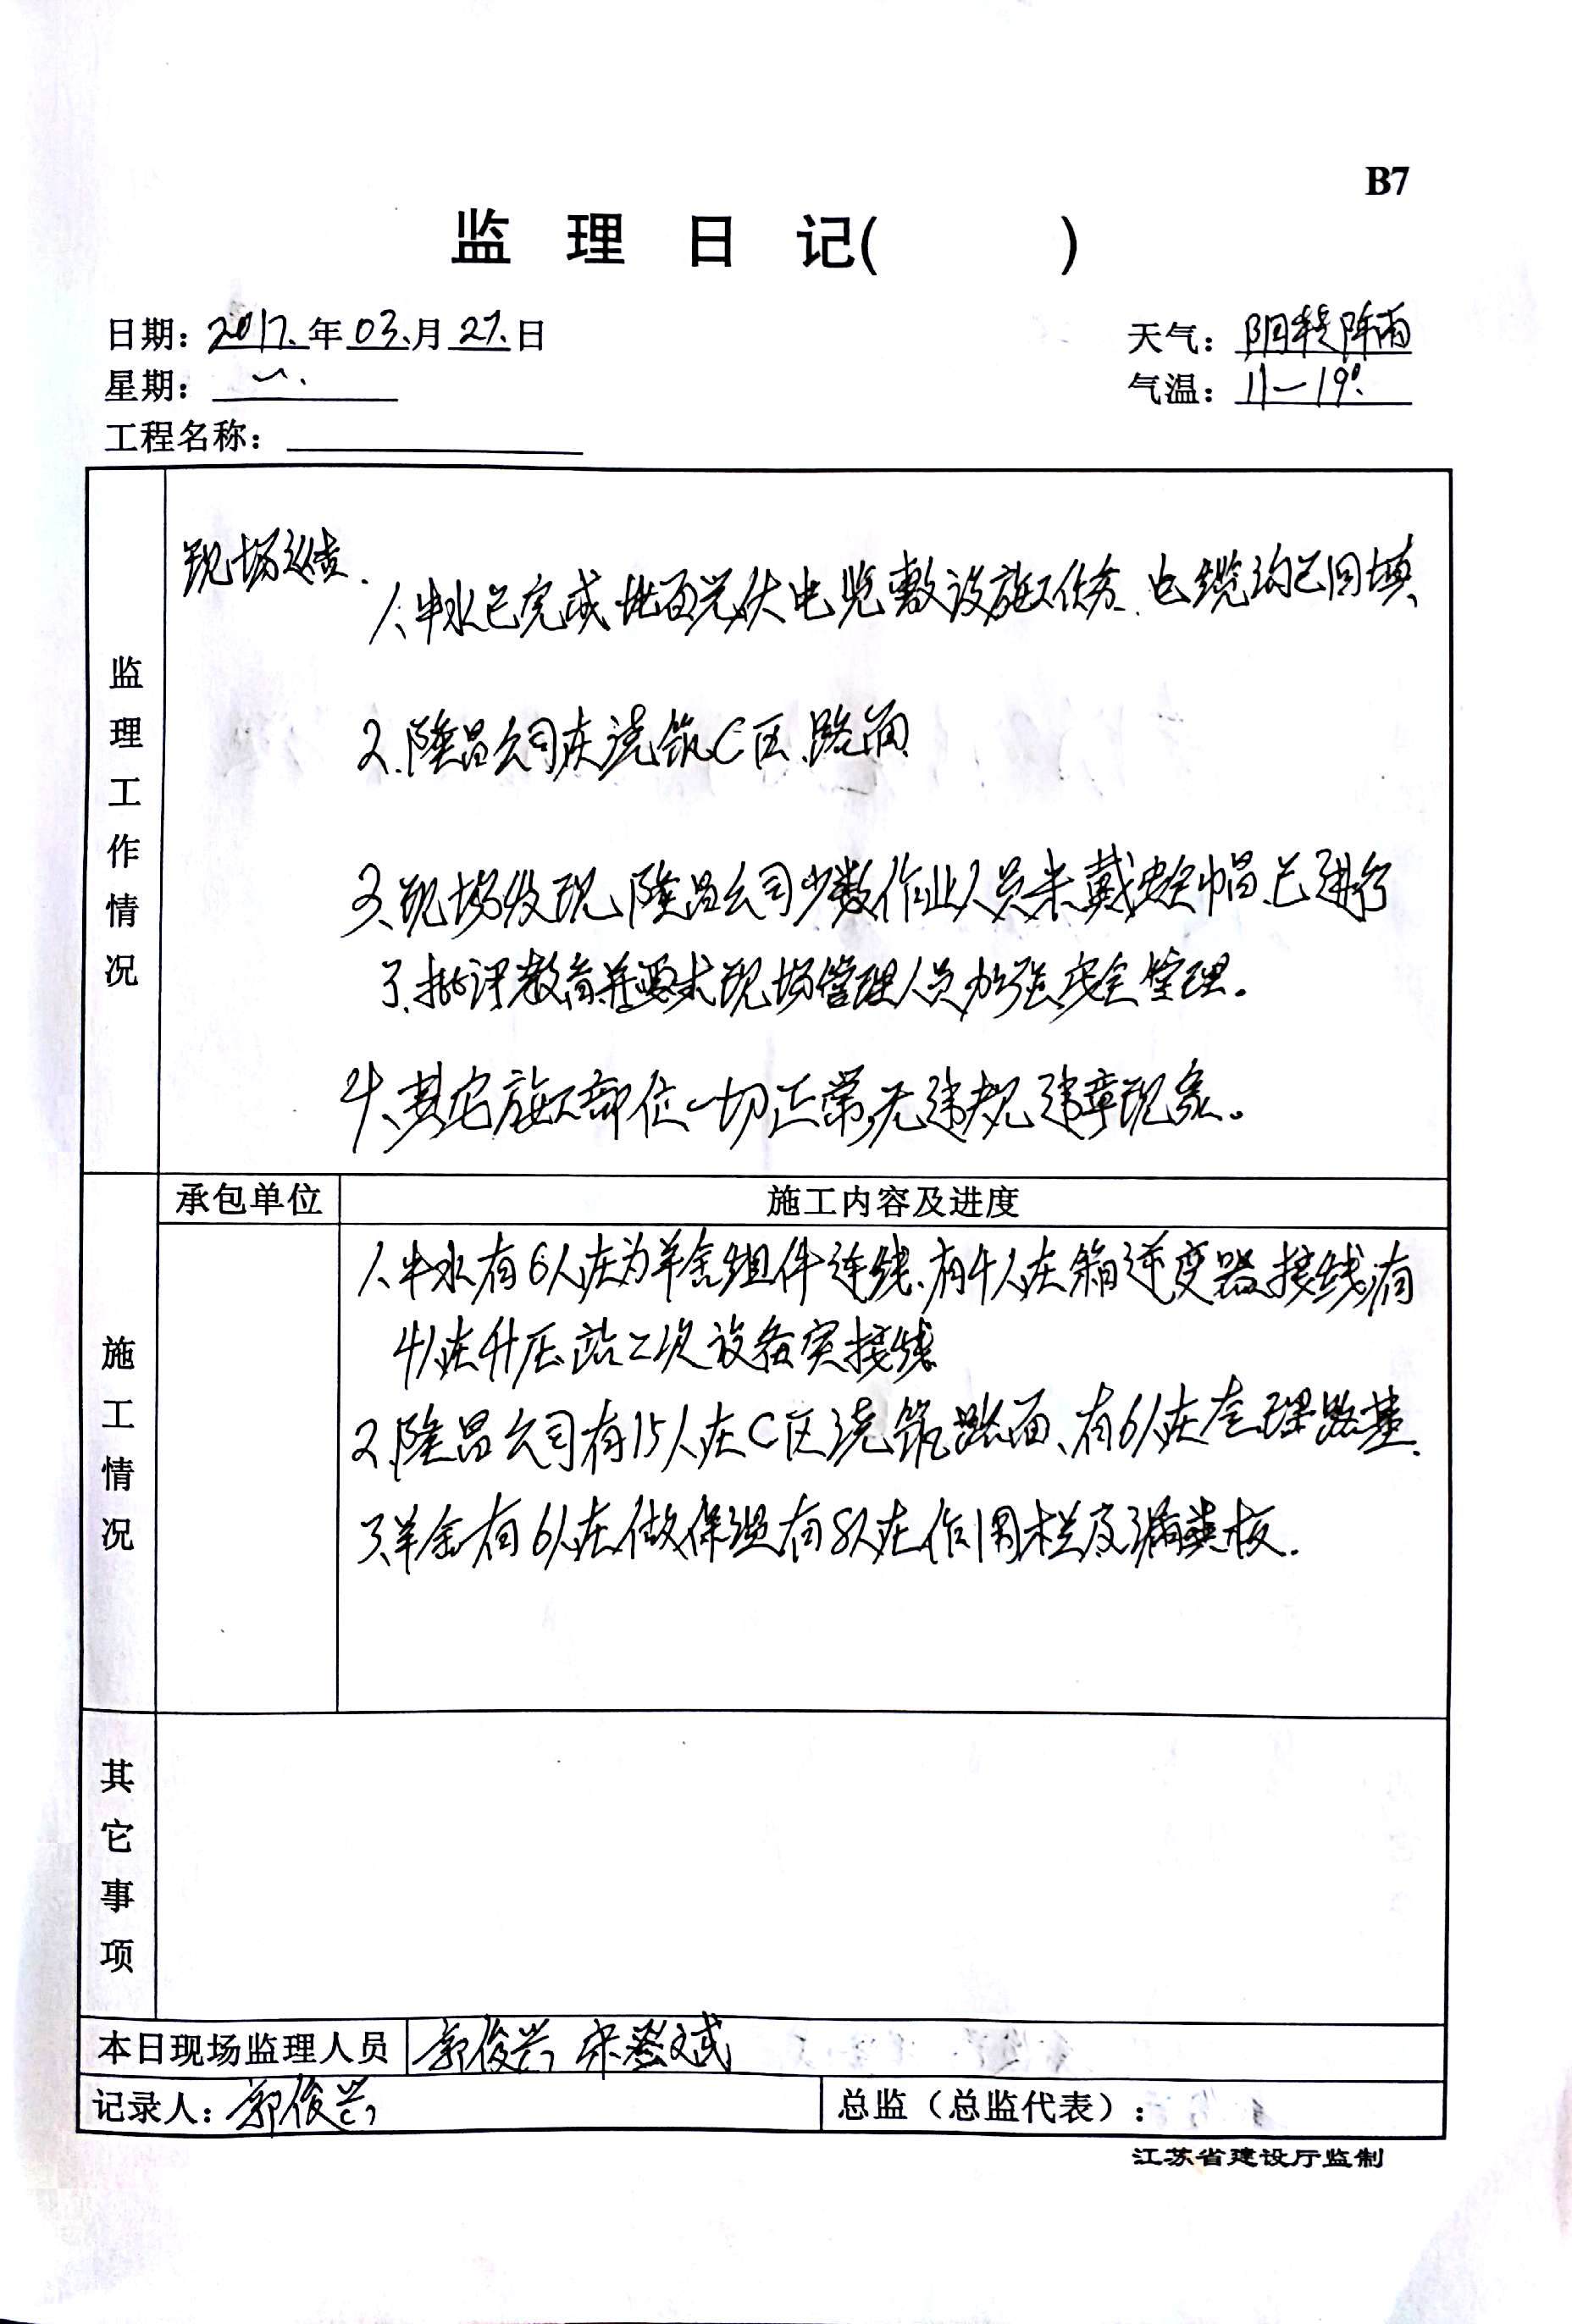 B7
监 理 日 记( )
日期：2017.年03.月27.日
天气：阴转阵雨
星期：一.
气温：11—19°.
工程名称：
监理工作情况
现场巡查.
1、中水已完成地面光伏电缆敷设施工任务.电缆沟已回填
2.隆昌公司在浇筑C区.路面
3、现场发现,隆昌公司少数作业人员未戴安全帽.已进行
了批评教育并要求现场管理人员加强安全管理.
4、其它施工部位一切正常,无违规违章现象。
承包单位
施工内容及进度
施工情况
1、中水有6人在为羊舍组件连线.有4人在箱逆变器接线,有
4人在升压站二次设备安接线
2.隆昌公司有15人在C区浇筑路面、有6人在整理路基.
3、羊舍有6人在做保温有8人在作围栏及漏粪板.
其它事项
本日现场监理人员
郭俊兴
记录人：郭俊兴
总监（总监代表）：
江苏省建设厅监制